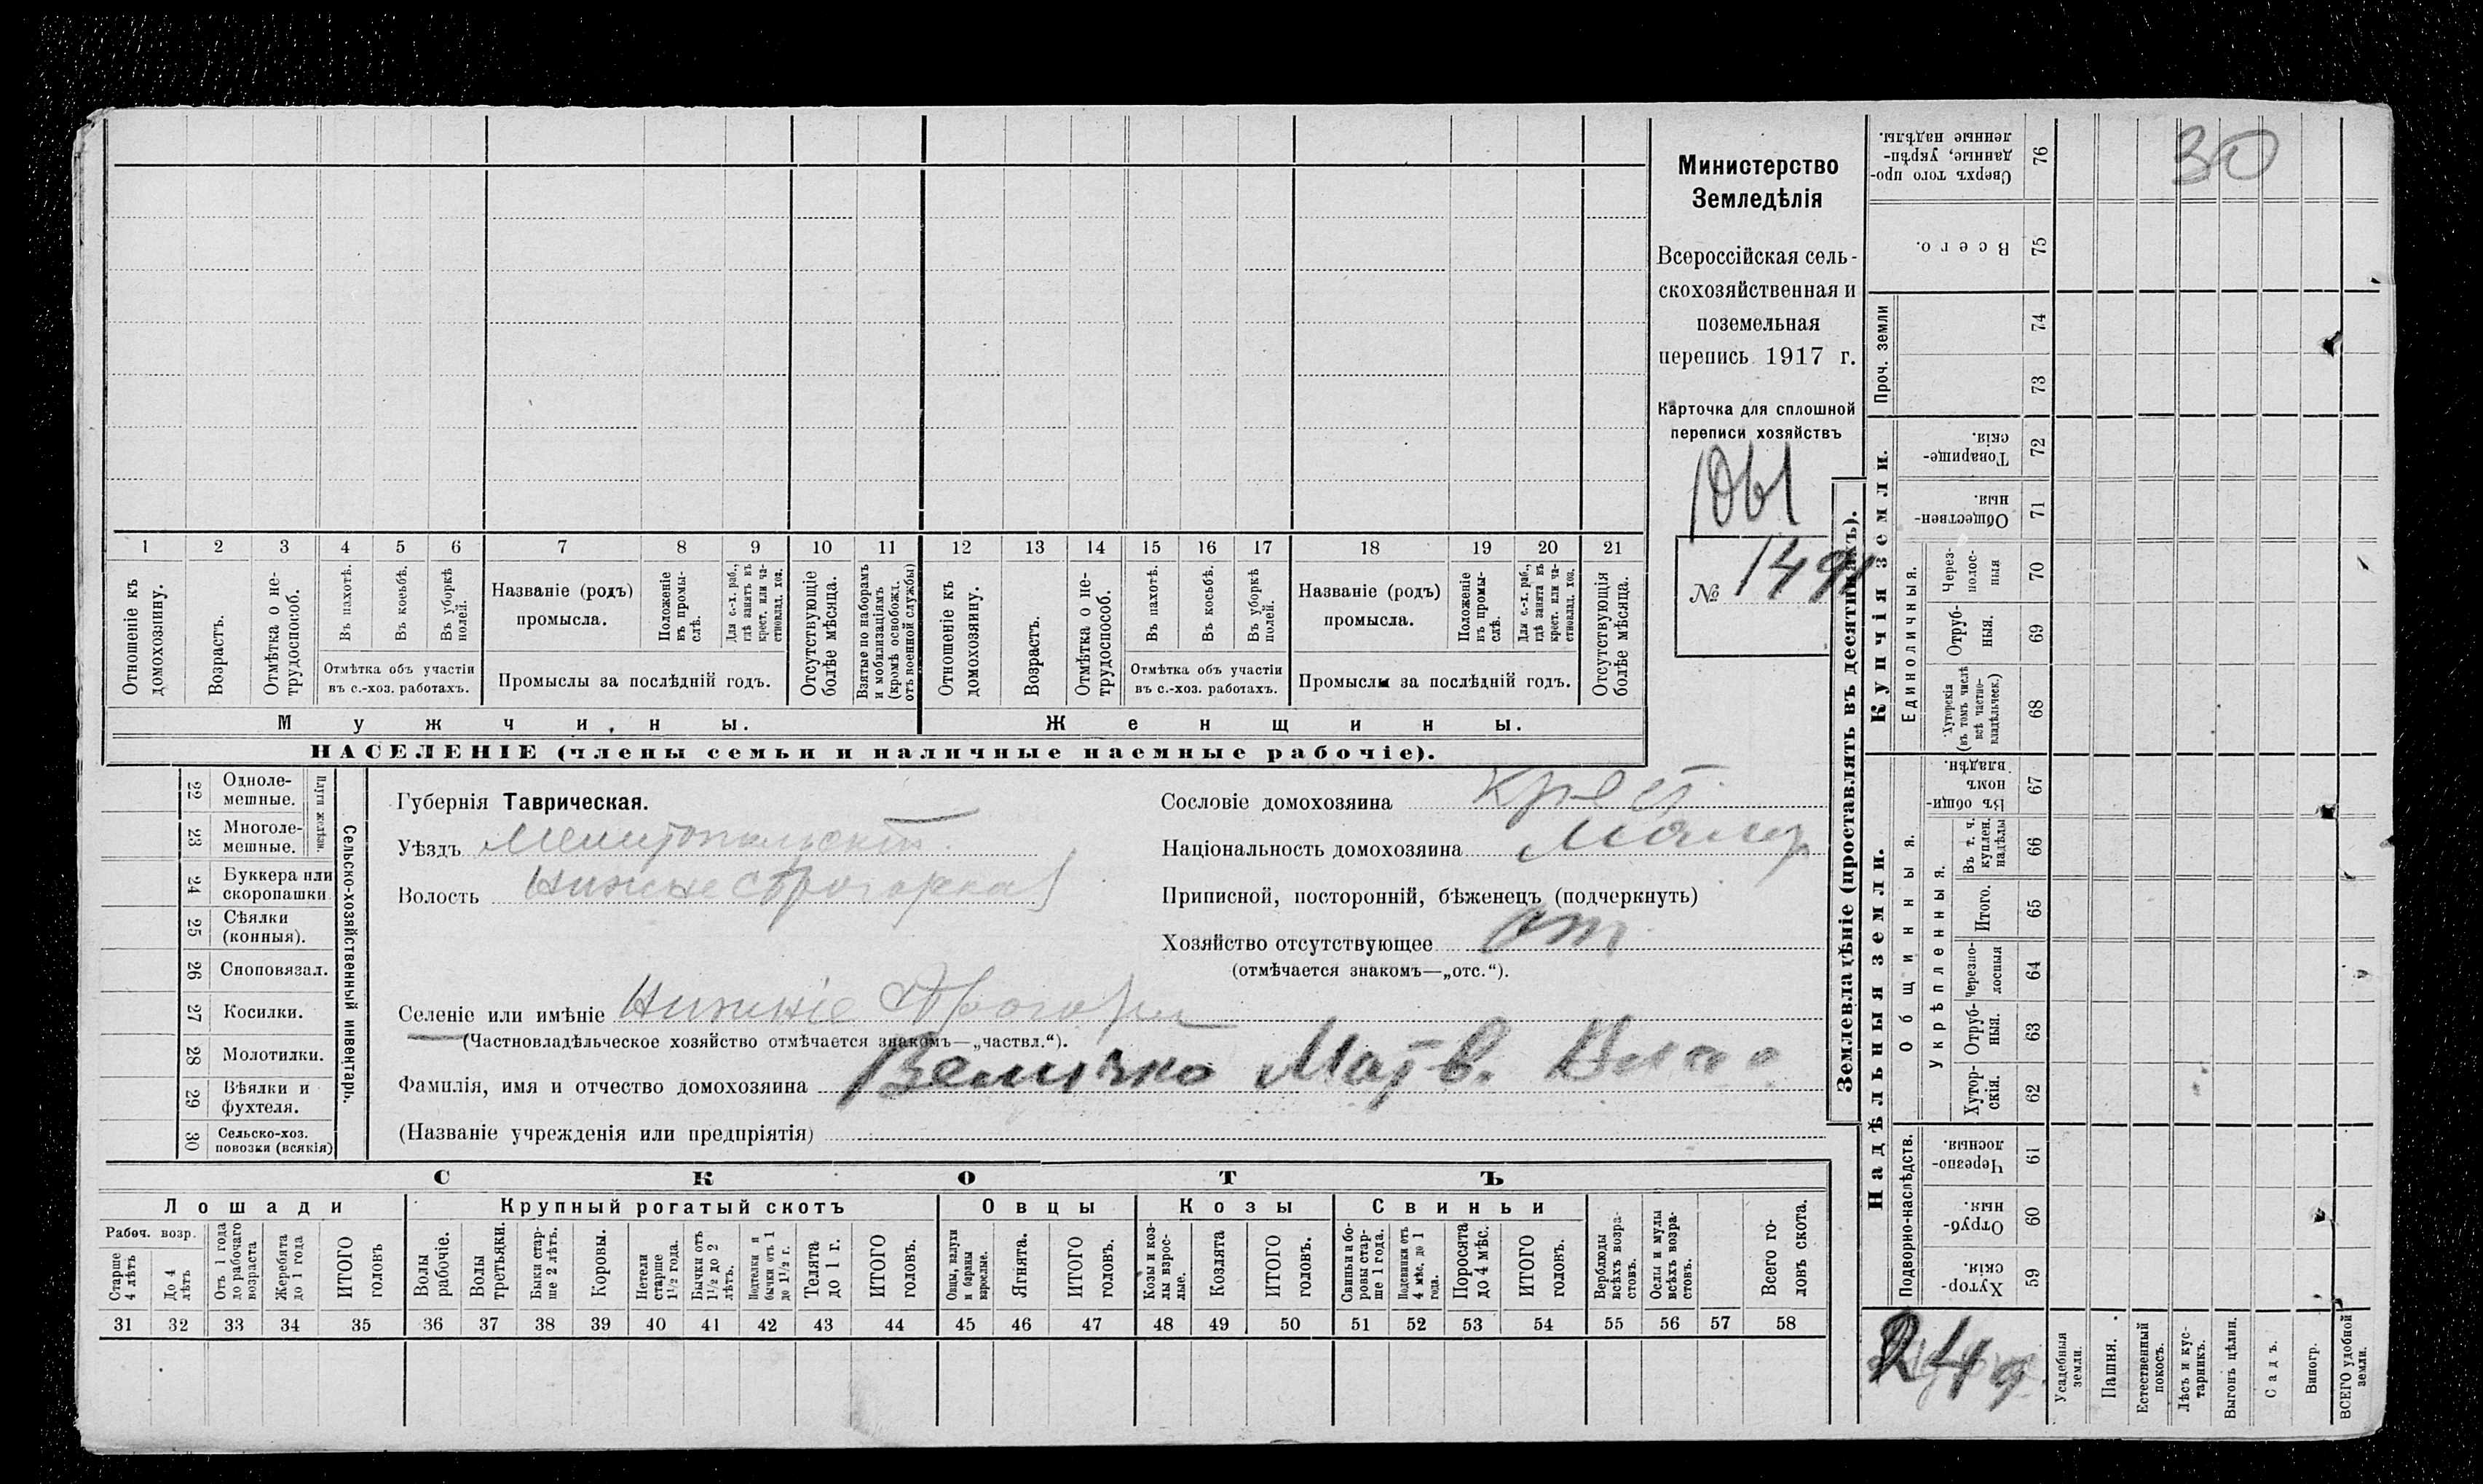 Министерство
Земледѣлія
Всероссійская сель-
скохозяйственная и
поземельная
перепись 1917 г.
Карточка для сплошной
переписи хозяйствъ
1061
№ 1491
1 2 3 4 5 6 7 8 9 10 11 12 13 14 15 16 17 18 19 20 21
Отношеніе къ
домохозяину.
Возрастъ.
Отмѣтка о не-
трудоспособ.
Въ пахотѣ.
Въ косьбѣ.
Въ уборкѣ
полей.
Отмѣтка объ участіи
въ с.-хоз. работахъ.
Названіе (родъ)
промысла.
Положеніе
въ промы-
слѣ.
Для с.-х. раб.,
гдѣ занятъ въ
крест. или ча-
стновлад. хоз.
Промыслы за послѣдній годъ.
Отсутствующіе
болѣе мѣсяца.
Взятые по наборамъ
и мобилизаціямъ
(кромѣ освобожд.
отъ военной службы)
Отношеніе къ
домохозяину.
Возрастъ.
Отмѣтка о не-
трудоспособ.
Въ пахотѣ.
Въ косьбѣ.
Въ уборкѣ
полей.
Отмѣтка объ участіи
въ с.-хоз. работахъ.
Названіе (родъ)
промысла.
Положеніе
въ промы-
слѣ.
Для с.-х. раб.,
гдѣ занята въ
крест. или ча-
стновлад. хоз.
Промыслы за послѣдній годъ.
Отсутствующія
болѣе мѣсяца.
Мужчины.
Женщины.
НАСЕЛЕНІЕ (члены семьи и наличные наемные рабочіе).
22 Одноле-
мешные.
23 Многоле-
мешные.
Плуги желѣзн.
24 Буккера или
скоропашки
25 Сѣялки
(конныя).
26 Сноповязал.
27 Косилки.
28 Молотилки.
29 Вѣялки и
фухтеля.
30 Сельско-хоз.
повозки (всякія)
Сельско-хозяйственный инвентарь.
Губернія Таврическая.
Уѣздъ Мелитопольскій
Волость
Селеніе или имѣніе
(Частновладѣльческое хозяйство отмѣчается знакомъ—„частвл.“).
Фамилія, имя и отчество домохозяина Величко Матв. Влас
(Названіе учрежденія или предпріятія)
Сословіе домохозяина Крест.
Національность домохозяина Малор
Приписной, посторонній, бѣженецъ (подчеркнуть)
Хозяйство отсутствующее отс
(отмѣчается знакомъ—„отс.“).
СКОТЪ
Лошади
Крупный рогатый скотъ
Овцы
Козы
Свиньи
Рабоч. возр.
Старше
4 лѣтъ
До 4
лѣтъ
Отъ 1 года
до рабочаго
возраста
Жеребята
до 1 года
ИТОГО
головъ
Волы
рабочіе.
Волы
третьяки.
Быки стар-
ше 2 лѣтъ.
Коровы.
Нетели
старше
1½ года.
Бычки отъ
1½ до 2
лѣтъ.
Подтелки и
бычки отъ 1
до 1½ г.
Телята
до 1 г.
ИТОГО
головъ.
Овцы, валухи
и бараны
взрослые.
Ягнята.
ИТОГО
головъ.
Козы и коз-
лы взрос-
лые.
Козлята
ИТОГО
головъ.
Свиньи и бо-
ровы стар-
ше 1 года.
Подсвинки отъ
4 мѣс. до 1
года.
Поросята
до 4 мѣс.
ИТОГО
головъ.
Верблюды
всѣхъ возра-
стовъ.
Ослы и мулы
всѣхъ возра-
стовъ.
Всего го-
ловъ скота.
31 32 33 34 35 36 37 38 39 40 41 42 43 44 45 46 47 48 49 50 51 52 53 54 55 56 57 58
Землевладѣніе (проставлять въ десятинахъ).
30
Сверхъ того про-
данные, укрѣп-
ленные надѣлы.
76
Всего.
75
Проч. земли
74
73
Купчія земли.
Товарище-
скія.
72
Обществен-
ныя
71
Единоличныя.
Через-
полос-
ныя
70
Отруб-
ныя.
69
Хуторскія
(въ томъ числѣ
всѣ частно-
владѣльческ.)
68
Надѣльныя земли.
Общинныя.
Въ общи-
номъ
владѣн.
67
Укрѣпленныя.
Въ т. ч.
куплен.
надѣлы
66
Итого.
65
Черезпо-
лосныя
64
Отруб-
ныя.
63
Хутор-
скія.
62
Подворно-наслѣдств.
Черезпо-
лосныя.
61
Отруб-
ныя.
60
Хутор-
скія.
59
249
Усадебныя
земли.
Пашня.
Естественный
покосъ.
Лѣсъ и кус-
тарникъ.
Выгонъ цѣлин.
Садъ.
Виногр.
ВСЕГО удобной
земли.